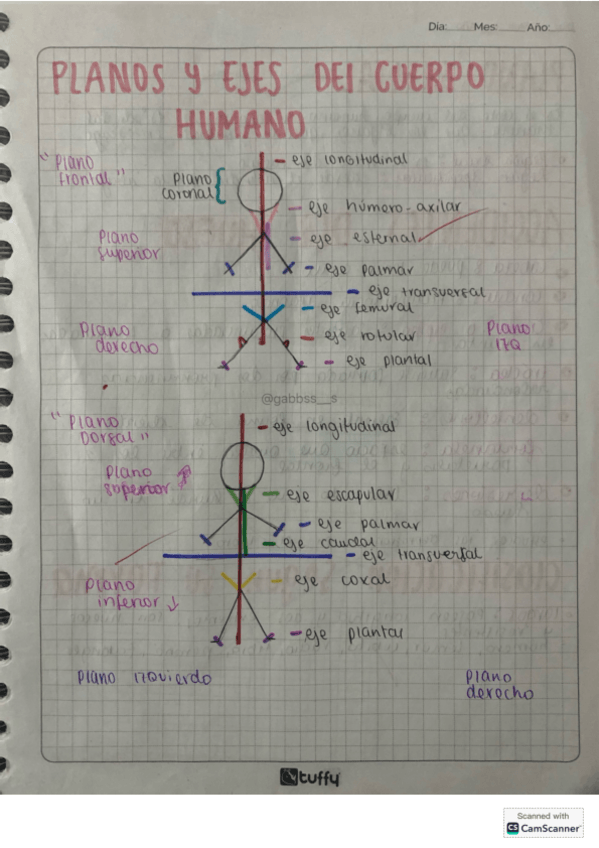 Dia: Mes: Año:
PLANOS Y EJES DEl CUERPO
HUMANO
"Plano
frontal"
Plano
coronal
eje longitudinal
eje húmero-axilar
eje esternal
Plano
superior
eje palmar
eje transversal
eje femural
Plano
derecho
eje rotular
Plano
izq
eje plantal
@gabbss__s
"Plano
Dorsal"
eje longitudinal
Plano
superior
eje escapular
eje palmar
eje caudal
eje transversal
Plano
inferior ↓
eje coxal
eje plantar
Plano izquierdo
Plano
derecho
tuffy
Scanned with
CS CamScanner